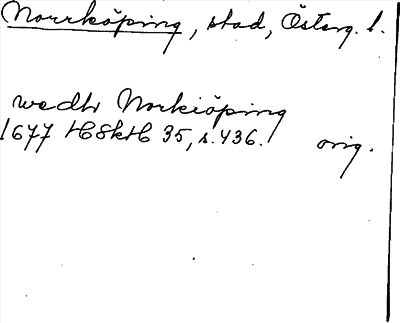 Norrköping, stad, Österg. l.
wedh Norkiöping
1677 HSkH 35, s. 436. orig.